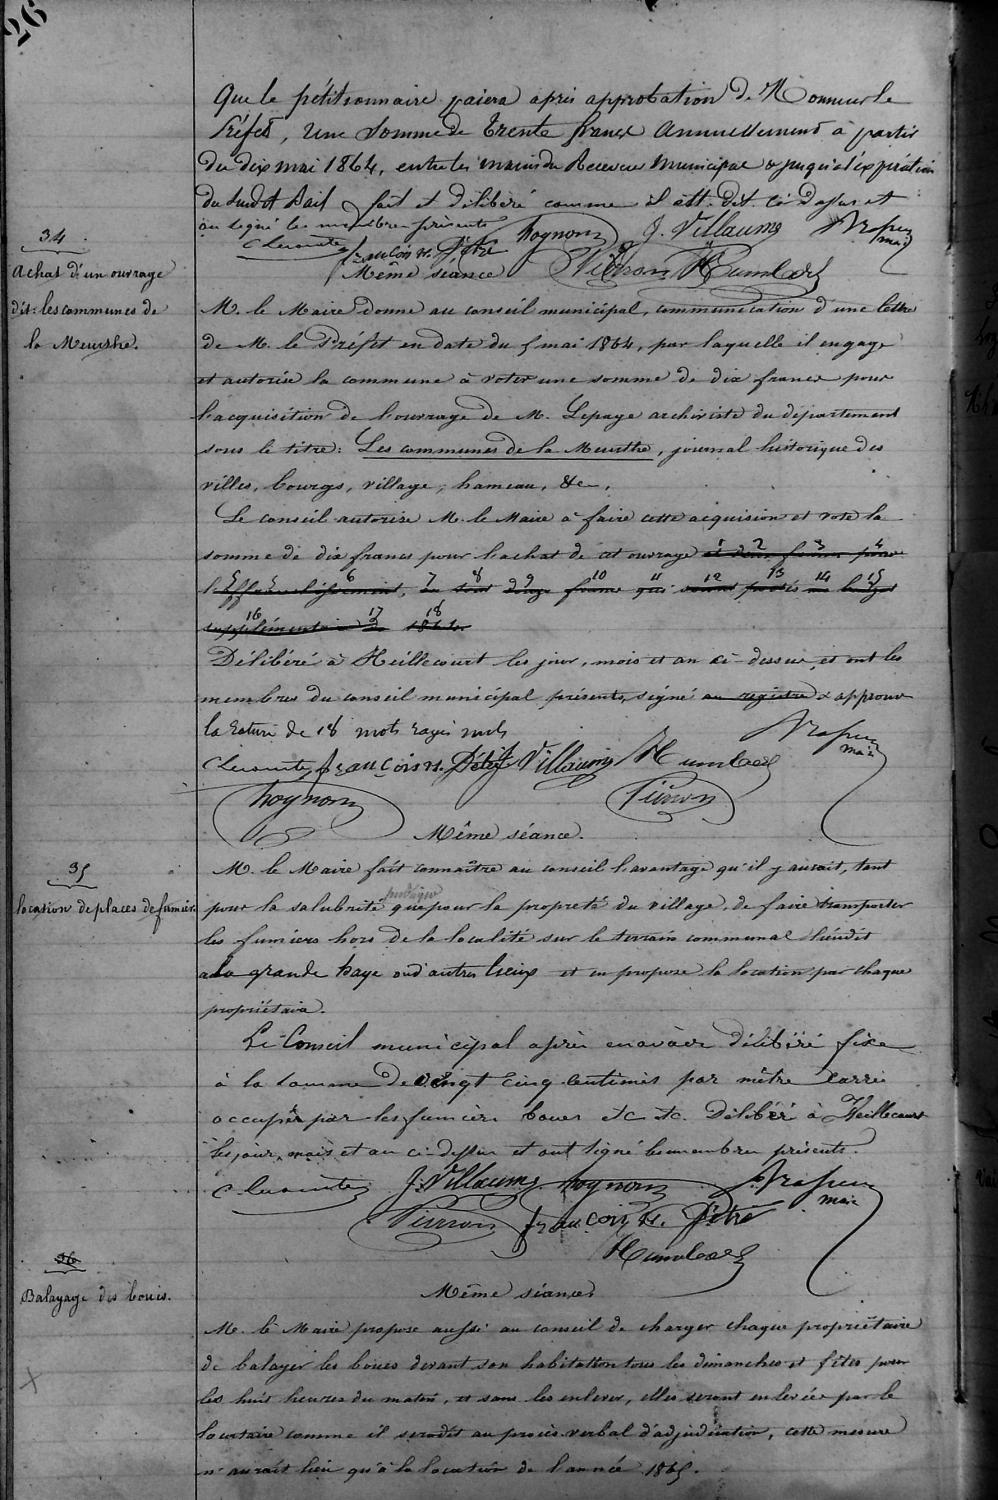 26
Que le pétitionnaire paiera après approbation de Monsieur le
Préfet, Une Somme de trente francs Annuellement à partir
du dix mai 1864, entre les mains du Receveur Municipal & jusqu'à l'expiration
du susdit Bail fait et délibéré comme il est dit ci dessus et
ont signé les membres présents hognon J. Villaume
maire
françois n. Pêtre
Même séance Pierron Humbert
34
Achat d'un ouvrage
dit: les communes de
la Meurthe.
M. le Maire donne au conseil municipal, communication d'une lettre
de M. le Préfet en date du 5 mai 1864, par laquelle il engage
et autorise la commune à voter une somme de dix francs pour
l'acquisition de l'ouvrage de M. Lepage archiviste du département
sous le titre: Les communes de la Meurthe, journal historique des
villes, bourgs, village, hameau, &c.
Le conseil autorise M. le Maire à faire cette acquision et vote la
somme de dix francs pour l'achat de cet ouvrage 1 2 3 4
5 6 7 8 9 10 11 12 13 14 15
16 17 18
supplémentaire de 1864.
Délibéré à Heillecourt les jour, mois et an ci-dessus, et ont les
membres du conseil municipal présents, signé au registre & approuve
la rature de 18 mots rayés nuls
maire
françois n. Pêtre J. Villaume Humbert
hognon Pierron
Même séance.
35
location de places de fumier.
M. le Maire fait connaître au conseil l'avantage qu'il y aurait, tant
pour la salubrité publique que pour la propreté du village, de faire transporter
les fumiers hors de la localité sur le terrain communal lieudit
a la grande haye ou d'autres lieux et en propose la location par chaque
propriétaire.
Le Conseil municipal après en avoir délibéré fixe
à la somme de vingt cinq centimes par mètre carré
occuper par les fumiers boues etc etc. Délibéré à Heillecourt
les jour, mois et an ci-dessus et ont signé les membres présents.
J. Villaume hognon
maire
Pierron françois n. Pêtre
Humbert
36
Balayage des boues.
Même séance
M. le Maire propose aussi au conseil de charger chaque propriétaire
de balayer les boues devant son habitation tous les dimanches et fêtes pour
les huit heures du matin, et sans les enlever, elles seront enlevées par le
locataire comme il sera dit au procès verbal d'adjudication, cette mesure
n'aurait lieu qu'à la location de l'année 1865.